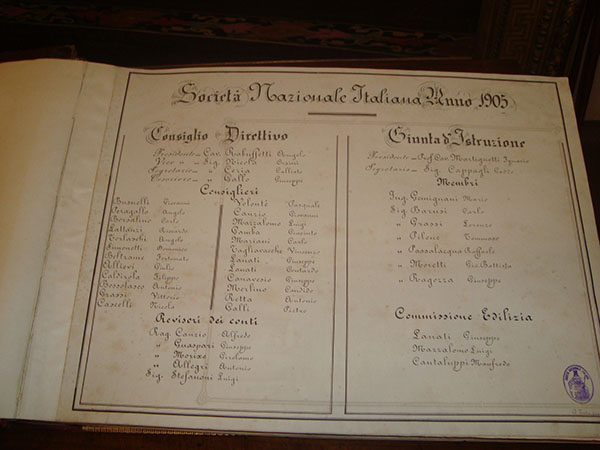 Società Nazionale Italiana Anno 1905
Consiglio Direttivo
Presidente Cav. Rabuffetti Angelo
Vice " " Sig. Nicola
Segretario " " Ceria Callisto
Tesoriere " " Gallo Giuseppe
Consiglieri
Busnelli Giovanni
Peragallo Angelo
Borsalino Carlo
Lattanzi
Torlaschi Angelo
Simonetti Domenico
Beltrame Fortunato
Allievi Giulio
Caldirola Filippo
Bossolasco Antonio
Grassi Vittorio
Cascelle Nicola
Volontè Pasquale
Canzio Giovanni
Mazzalomo Luigi
Gamba Giacinto
Mariani Carlo
Tagliavacche Vincenzo
Lanati Giuseppe
Lanati Contardo
Canavesio Giuseppe
Merlino Candido
Retta Antonio
Galli Pietro
Revisori dei conti
Rag. Canzio Alfredo
" Guaspari Giuseppe
" Morixe Girolamo
" Allegri Antonio
Sig. Stefanoni Luigi
Giunta d'Istruzione
Presidente Prof. Cav. Martignetti Ignazio
Segretario Sig. Cappagli
Membri
Ing. Gemignani Mario
Sig. Barusi Carlo
" Grassi Lorenzo
" Pilone Tommaso
" Passalacqua Raffaele
" Moretti Gio. Battista
" Ragozza Giuseppe
Commissione Edilizia
Lanati Giuseppe
Mazzalomo Luigi
Cantaluppi Manfredo